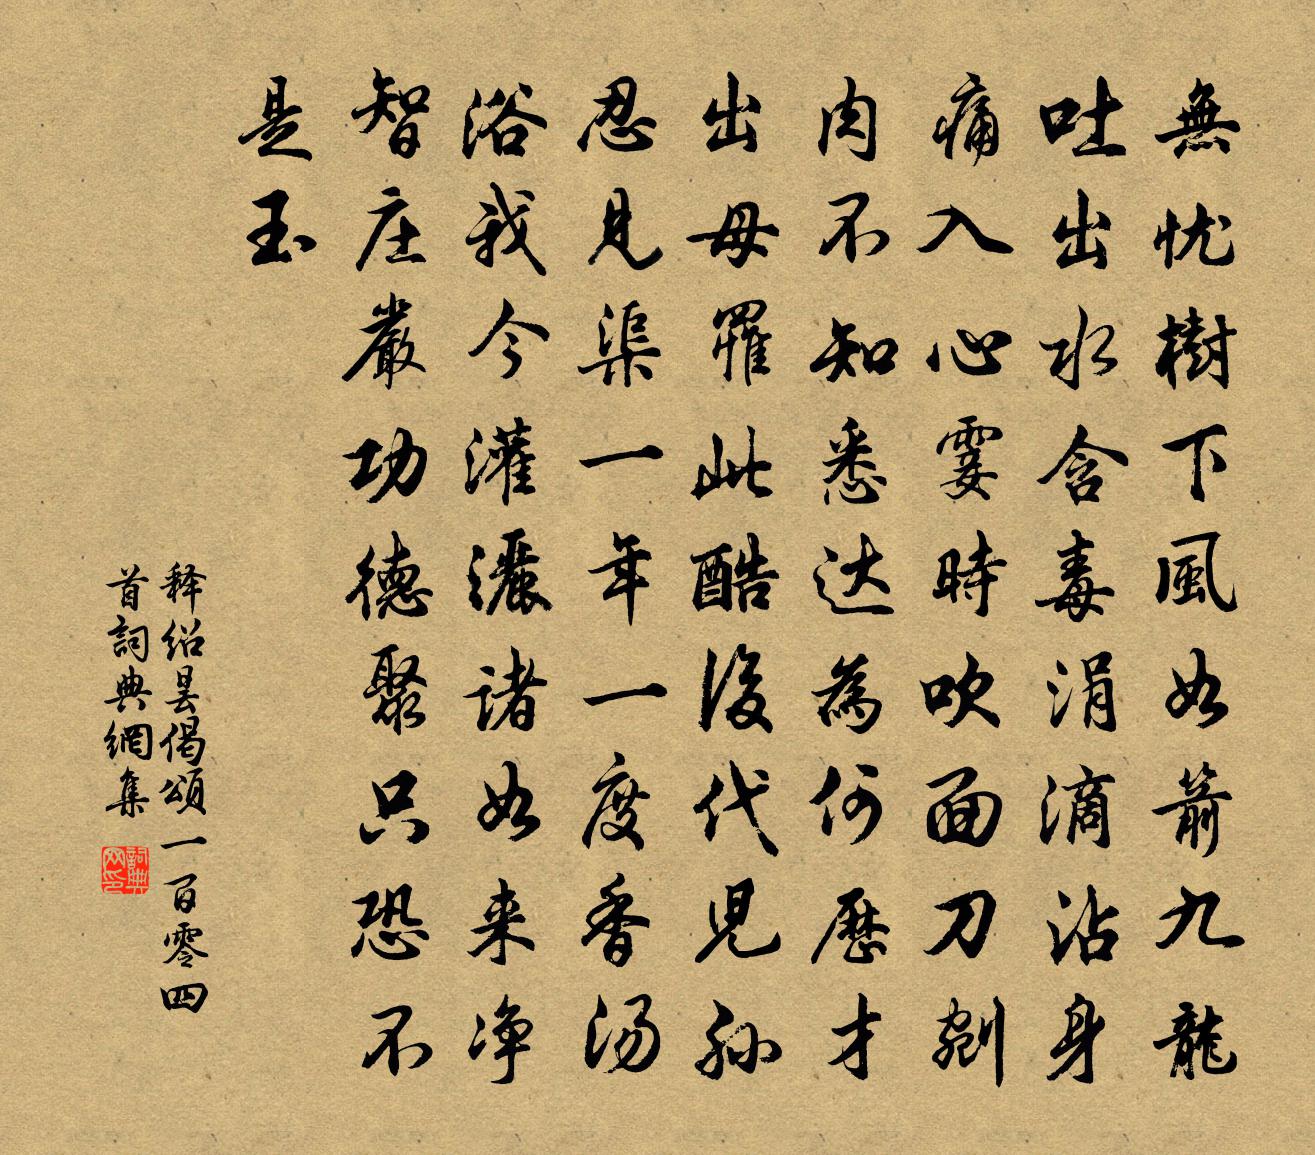 無忧樹下風如箭九龍
吐出水含毒涓滴沾身
痛入心霎時吹面刀剜
肉不知悉达為何歷才
出母罹此酷後代児孙
忍見渠一年一度香汤
浴我今灌灑诸如来净
智庄嚴功德聚只恐不
是玉
释绍昙偈頌一百零四
首詞典網集
詞典网印